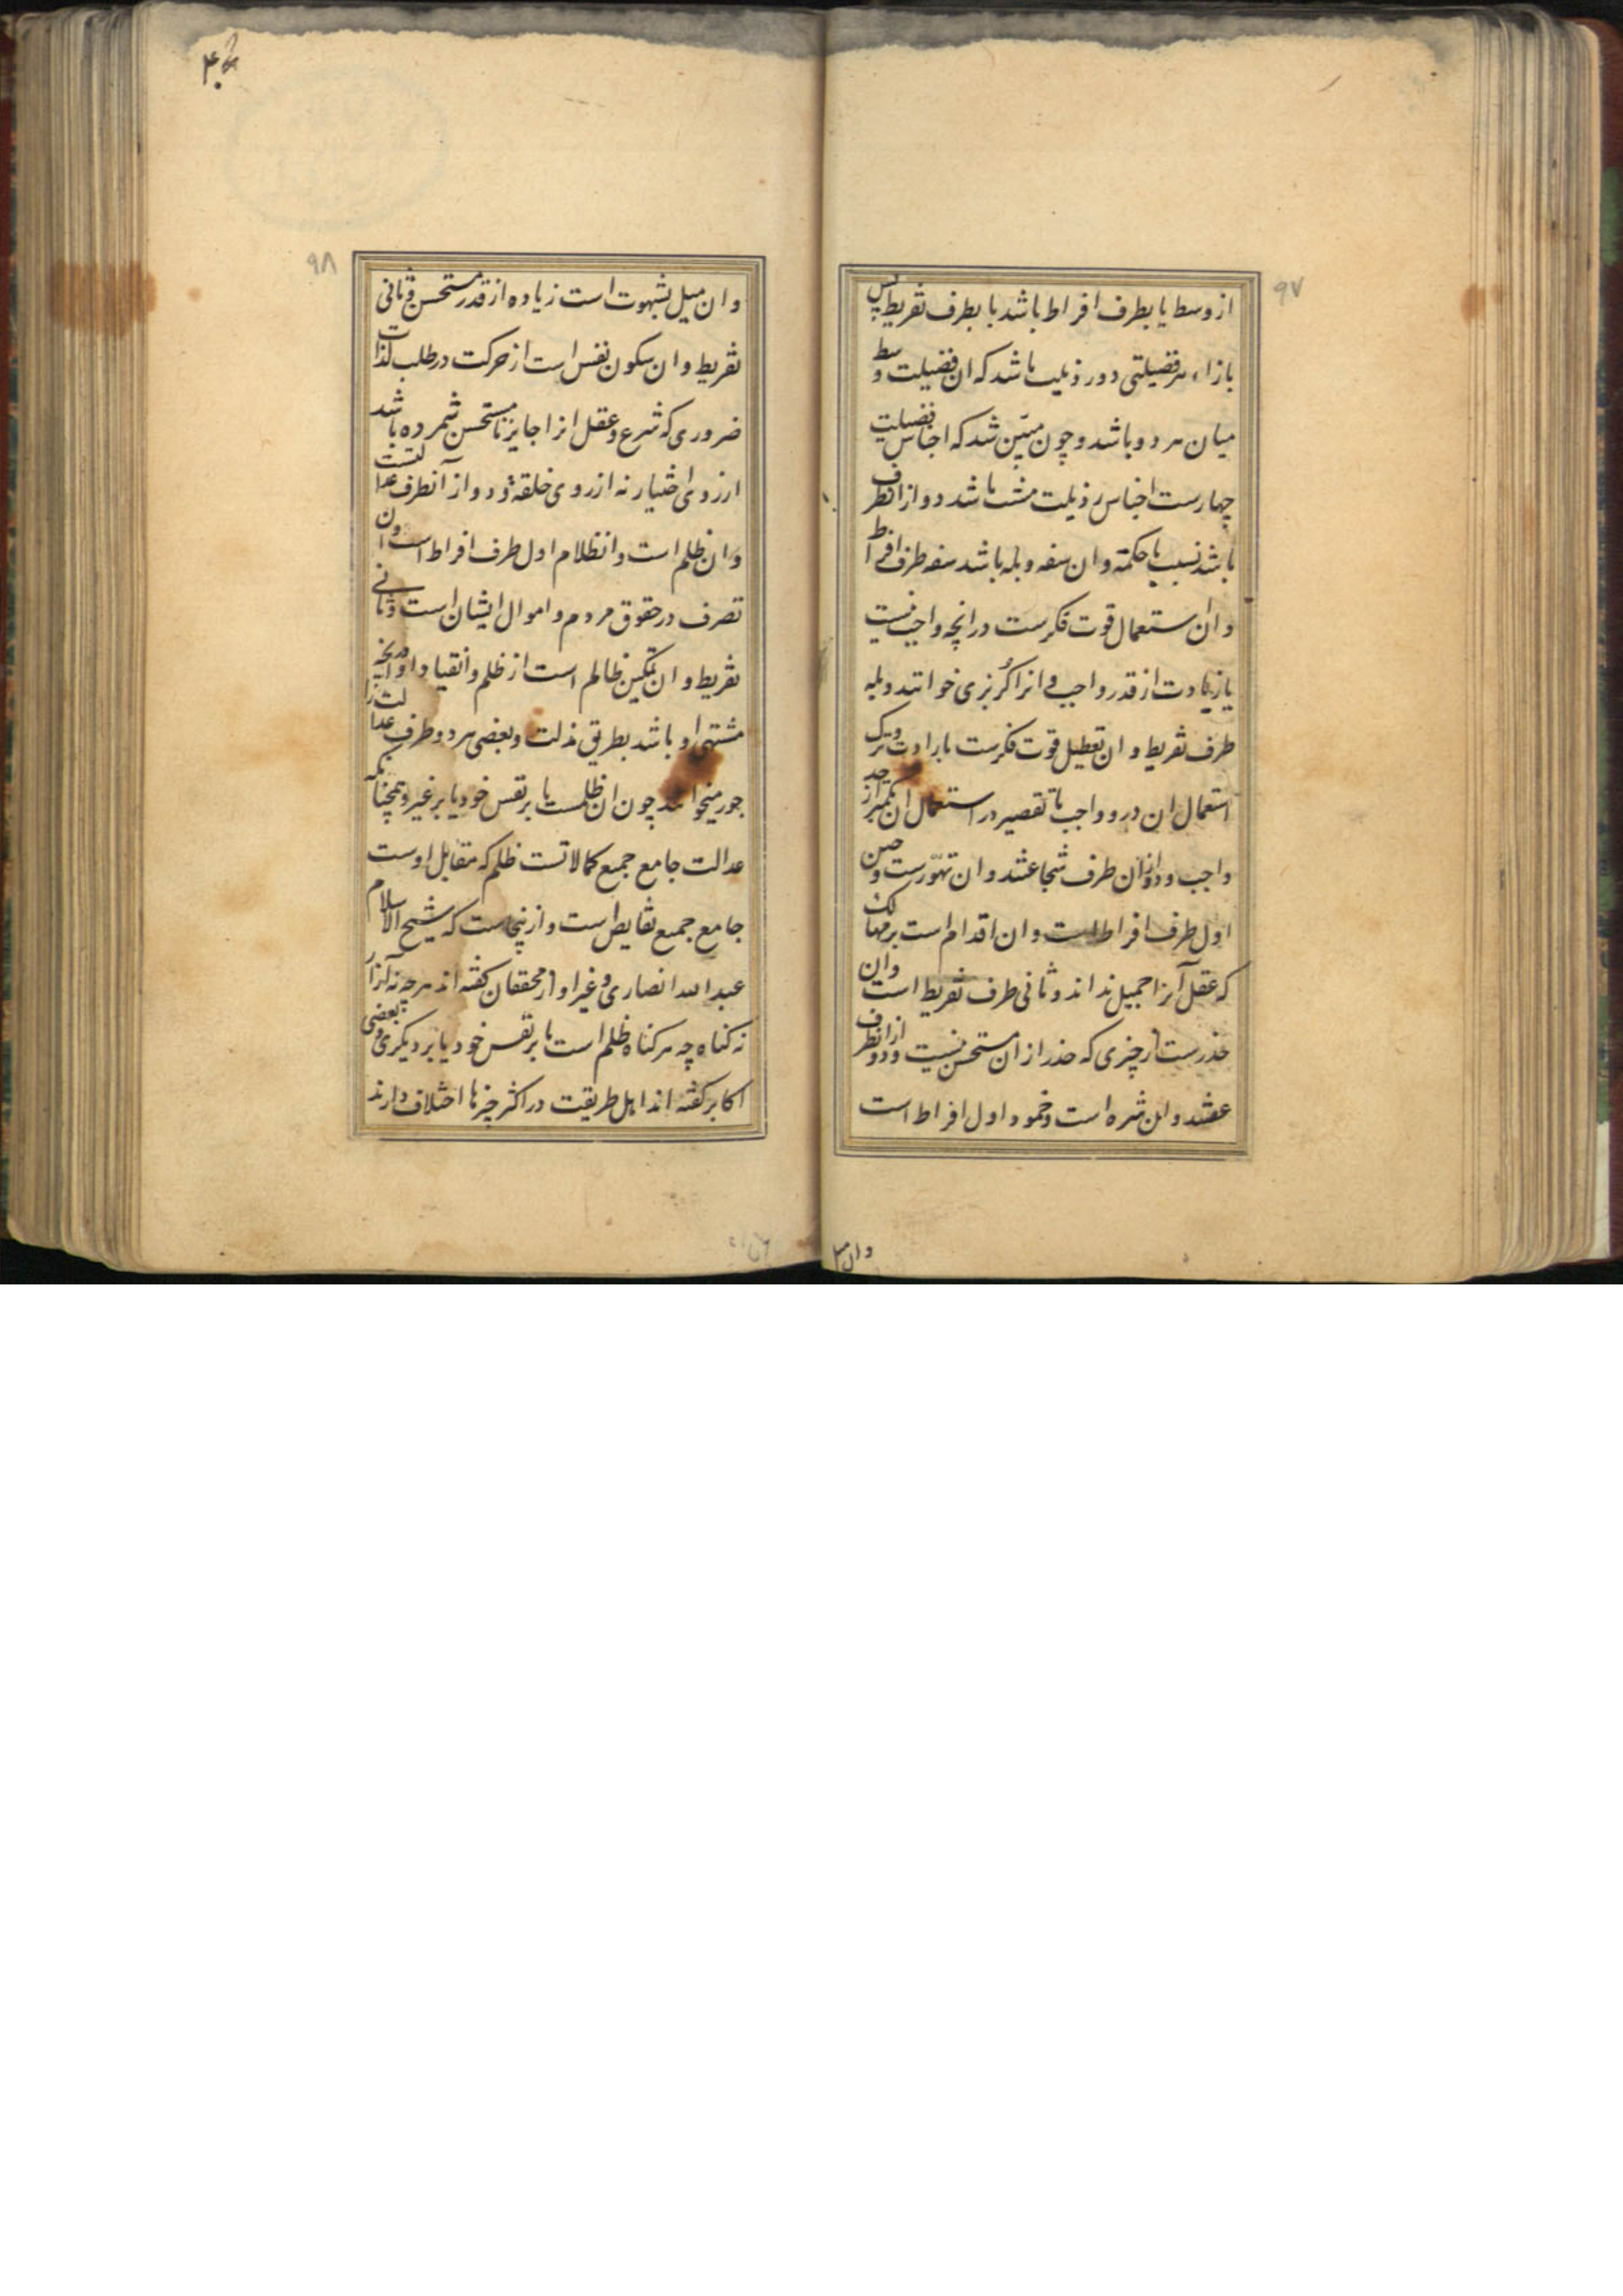 ۹۷
از وسط یا بطرف افراط باشد یا بطرف تفریط پس
بازاء هر فضیلتی دو رذیلت باشد که ان فضیلت وسط
میان هر دو باشد و چون مبین شد که اجناس فضیلت
چهارست اجناس رذیلت هشت باشد دو از انطرف
باشد نسبت با حکمة و ان سفه و بله باشد سفه طرف افراط
و ان استعمال قوت فکرست در انچه واجب نیست
یا زیادت از قدر واجب و انرا گربزی خوانند و بله
طرف تفریط و ان تعطیل قوت فکرست بارادت و ترک
استعمال ان در و واجب یا تقصیر در استعمال ان کمتر از حد
واجب و دو ازان طرف شجاعتند و ان تهوّرست و جبن
اول طرف افراط است و ان اقدام است بر مهالک
که عقل آنرا جمیل نداند و ثانی طرف تفریط است وان
حذرست از چیزی که حذر از ان مستحسن نیست و دو از انطرف
عفتند و ان شره است و خمود اول افراط است
وان میل
۹۸
و ان میل بشهوت است زیاده از قدر مستحسن و ثانی
تفریط و ان سکون نفس است از حرکت در طلب لذات
ضروری که شرع و عقل انرا جایز یا مستحسن شمرده باشد
از روی اختیار نه از روی خلقة و دو از آنطرف عدالتست
و ان ظلم است و انظلام اول طرف افراط است و ان
تصرف در حقوق مردم و اموال ایشان است و ثانی
تفریط و ان تمکین ظالم است از ظلم و انقیاد او در انچه
مشتهی او باشد بطریق مذلت و بعضی هر دو طرف عدالت را
جور میخوانند چون ان ظلمست یا بر نفس خود یا بر غیر و همچنانکه
عدالت جامع جمیع کمالاتست ظلم که مقابل اوست
جامع جمیع نقایص است و ازینجاست که شیخ الاسلام
عبدالله انصاری و غیر او از محققان گفته اند هرچه نه آزار
نه کناه چه هر کناه ظلم است یا بر نفس خود یا بر دیکری و بعضی
اکابر کفته اند اهل طریقت در اکثر چیزها اختلاف دارند